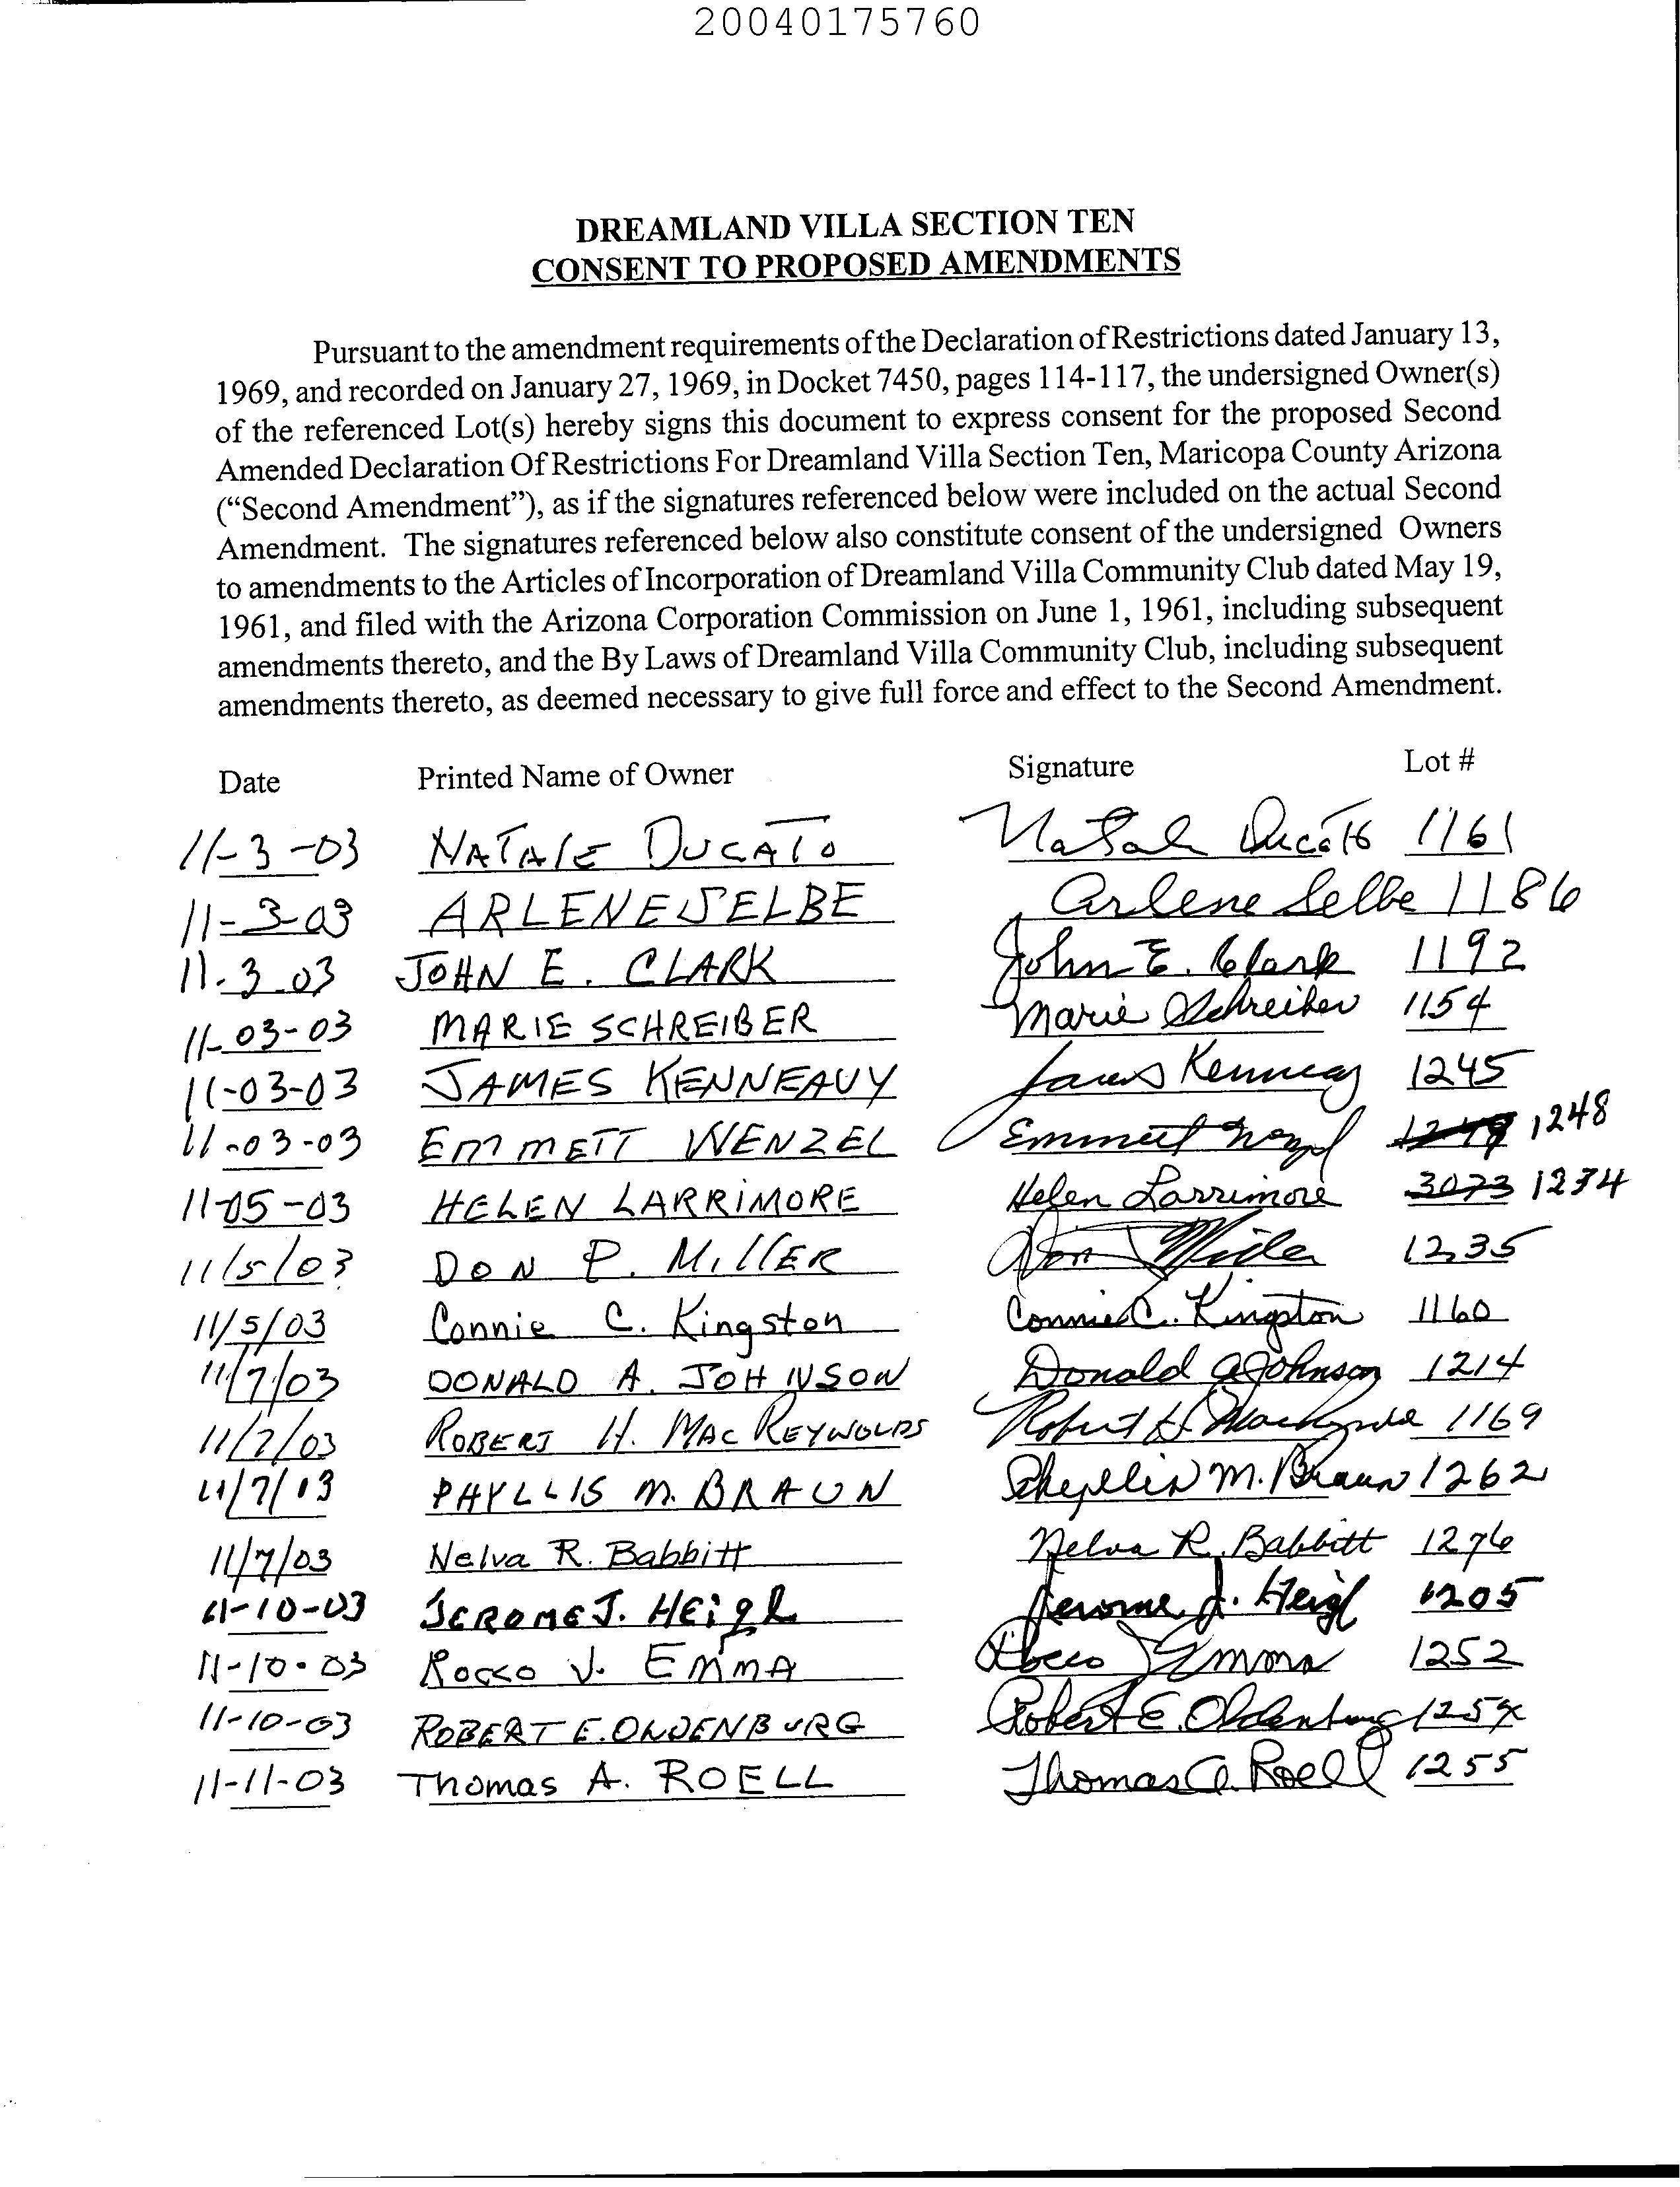 20040175760
DREAMLAND VILLA SECTION TEN
CONSENT TO PROPOSED AMENDMENTS
Pursuant to the amendment requirements of the Declaration of Restrictions dated January 13,
1969, and recorded on January 27, 1969, in Docket 7450, pages 114-117, the undersigned Owner(s)
of the referenced Lot(s) hereby signs this document to express consent for the proposed Second
Amended Declaration Of Restrictions For Dreamland Villa Section Ten, Maricopa County Arizona
("Second Amendment"), as if the signatures referenced below were included on the actual Second
Amendment. The signatures referenced below also constitute consent of the undersigned Owners
to amendments to the Articles of Incorporation of Dreamland Villa Community Club dated May 19,
1961, and filed with the Arizona Corporation Commission on June 1, 1961, including subsequent
amendments thereto, and the By Laws of Dreamland Villa Community Club, including subsequent
amendments thereto, as deemed necessary to give full force and effect to the Second Amendment.
Date Printed Name of Owner Signature Lot #
11-3-03 NATALE DUCATO Natale Ducato 1161
11-3-03 ARLENE SELBE Arlene Selbe 1186
11.3.03 JOHN E. CLARK John E. Clark 1192
11-03-03 MARIE SCHREIBER Marie Schreiber 1154
11-03-03 JAMES KENNEAVY James Kenneavy 1245
11-03-03 EMMETT WENZEL Emmett Wenzel 1248
11-05-03 HELEN LARRIMORE Helen Larrimore 3073 1234
11/5/03 DON P. MILLER Don Miller 1235
11/5/03 Connie C. Kingston Connie C. Kingston 1160
11/7/03 DONALD A. JOHNSON Donald A Johnson 1214
11/7/03 ROBERT H. MAC REYNOLDS Robert H. 1169
11/7/03 PHYLLIS M. BRAUN Phyllis M. Braun 1262
11/7/03 Nelva R. Babbitt Nelva R. Babbitt 1276
11-10-03 JEROME J. HEIGL Jerome J. Heigl 1205
11-10-03 ROCCO V. EMMA Rocco V Emma 1252
11-10-03 ROBERT E. OLDENBURG Robert E. Oldenburg
11-11-03 Thomas A. ROELL Thomas A. Roell 1255